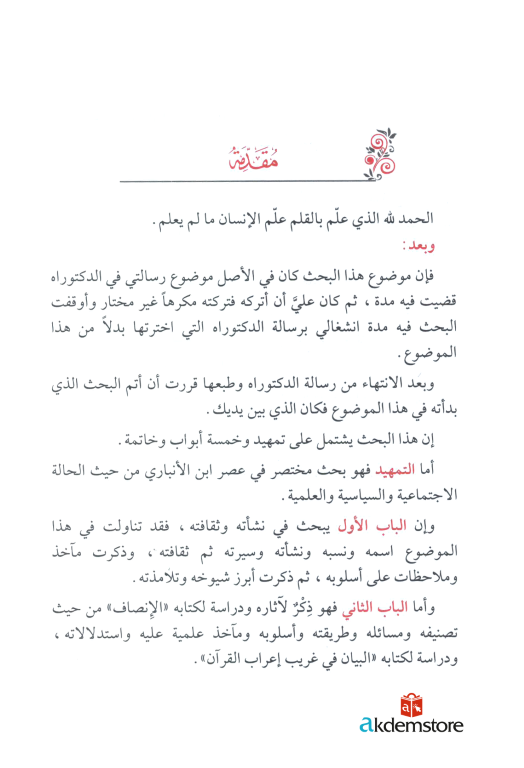 مُقَدِّمَةٌ
الحمد لله الذي علّم بالقلم علّم الإنسان ما لم يعلم .
وبعد :
فإن موضوع هذا البحث كان في الأصل موضوع رسالتي في الدكتوراه
قضيت فيه مدة ، ثم كان عليَّ أن أتركه فتركته مكرهاً غير مختار وأوقفت
البحث فيه مدة انشغالي برسالة الدكتوراه التي اخترتها بدلاً من هذا
الموضوع .
وبعد الانتهاء من رسالة الدكتوراه وطبعها قررت أن أتم البحث الذي
بدأته في هذا الموضوع فكان الذي بين يديك .
إن هذا البحث يشتمل على تمهيد وخمسة أبواب وخاتمة .
أما التمهيد فهو بحث مختصر في عصر ابن الأنباري من حيث الحالة
الاجتماعية والسياسية والعلمية .
وإن الباب الأول يبحث في نشأته وثقافته ، فقد تناولت في هذا
الموضوع اسمه ونسبه ونشأته وسيرته ثم ثقافته ، وذكرت مآخذ
وملاحظات على أسلوبه ، ثم ذكرت أبرز شيوخه وتلامذته .
وأما الباب الثاني فهو ذِكْرٌ لآثاره ودراسة لكتابه «الإنصاف» من حيث
تصنيفه ومسائله وطريقته وأسلوبه ومآخذ علمية عليه واستدلالاته ،
ودراسة لكتابه «البيان في غريب إعراب القرآن» .
akdemstore